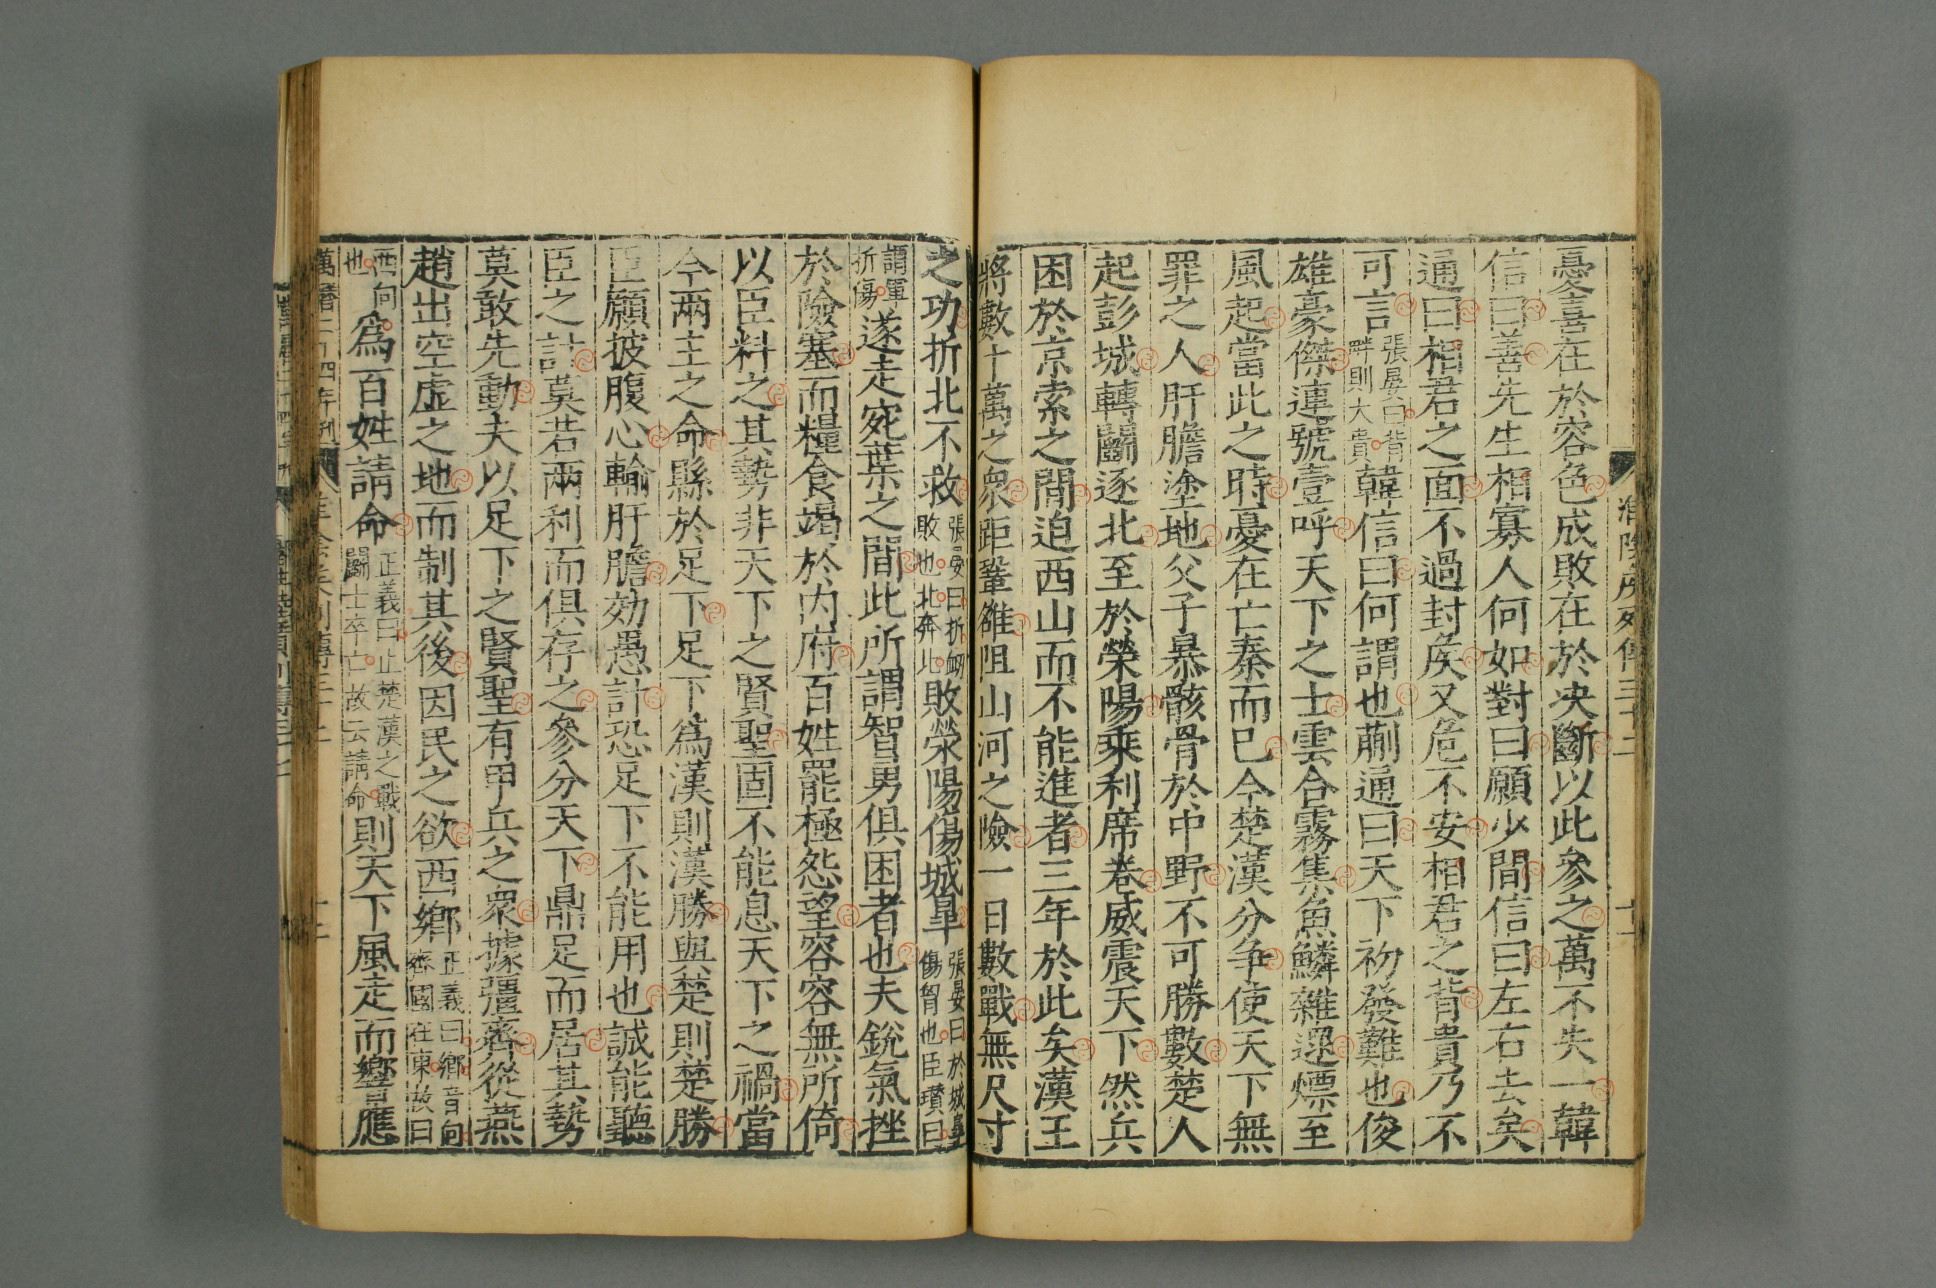 淮陰侯列傳三十二
十一
憂喜在於容色成敗在於決斷以此參之萬不失一韓
信曰善先生相寡人何如對曰願少間信曰左右去矣
通曰相君之面不過封侯又危不安相君之背貴乃不
可言張晏曰背畔則大貴韓信曰何謂也蒯通曰天下初發難也俊
雄豪傑連號壹呼天下之士雲合霧集魚鱗雜遝熛至
風起當此之時憂在亡秦而已今楚漢分争使天下無
罪之人肝膽塗地父子暴骸骨於中野不可勝數楚人
起彭城轉鬭逐北至於滎陽乘利席卷威震天下然兵
困於京索之間迫西山而不能進者三年於此矣漢王
將數十萬之衆距鞏雒阻山河之險一日數戰無尺寸
之功折北不救張晏曰折衂敗也北奔北敗滎陽傷城皐張晏曰於城皐傷胷也臣瓚曰
謂軍折傷遂走宛葉之間此所謂智男俱困者也夫銳氣挫
於險塞而糧食竭於内府百姓罷極怨望容容無所倚
以臣料之其勢非天下之賢聖固不能息天下之禍當
今兩主之命縣於足下足下為漢則漢勝與楚則楚勝
臣願披腹心輸肝膽効愚計恐足下不能用也誠能聽
臣之計莫若兩利而俱存之參分天下鼎足而居其勢
莫敢先動夫以足下之賢聖有甲兵之衆據彊齊從燕
趙出空虚之地而制其後因民之欲西鄉正義曰鄉音向齊國在東故曰
西向也為百姓請命正義曰止楚漢之戰鬭士卒亡故云請命則天下風走而響應
萬曆二十四年刊
十二